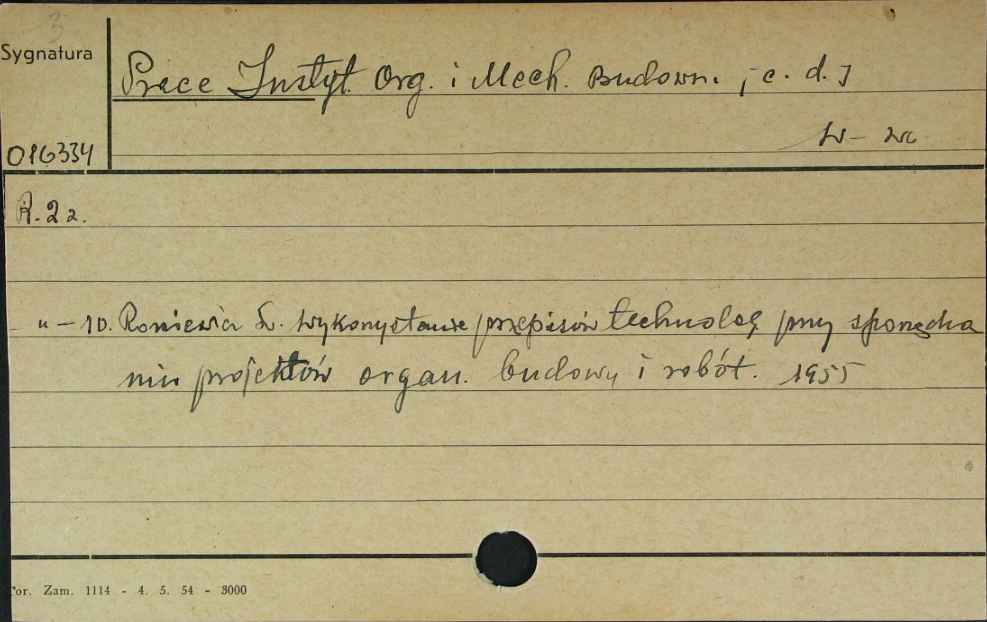 3
Sygnatura
Prace Instyt. Org. i Mech. Budown. [c. d.]
W-wa
016334
R. 2 z.
" - 10. Roniewicz S. Wykorzystanie przepisów technolog przy sporządza
niu projektów organ. budowy i robót. 1955
or. Zam. 1114 - 4. 5. 54 - 3000